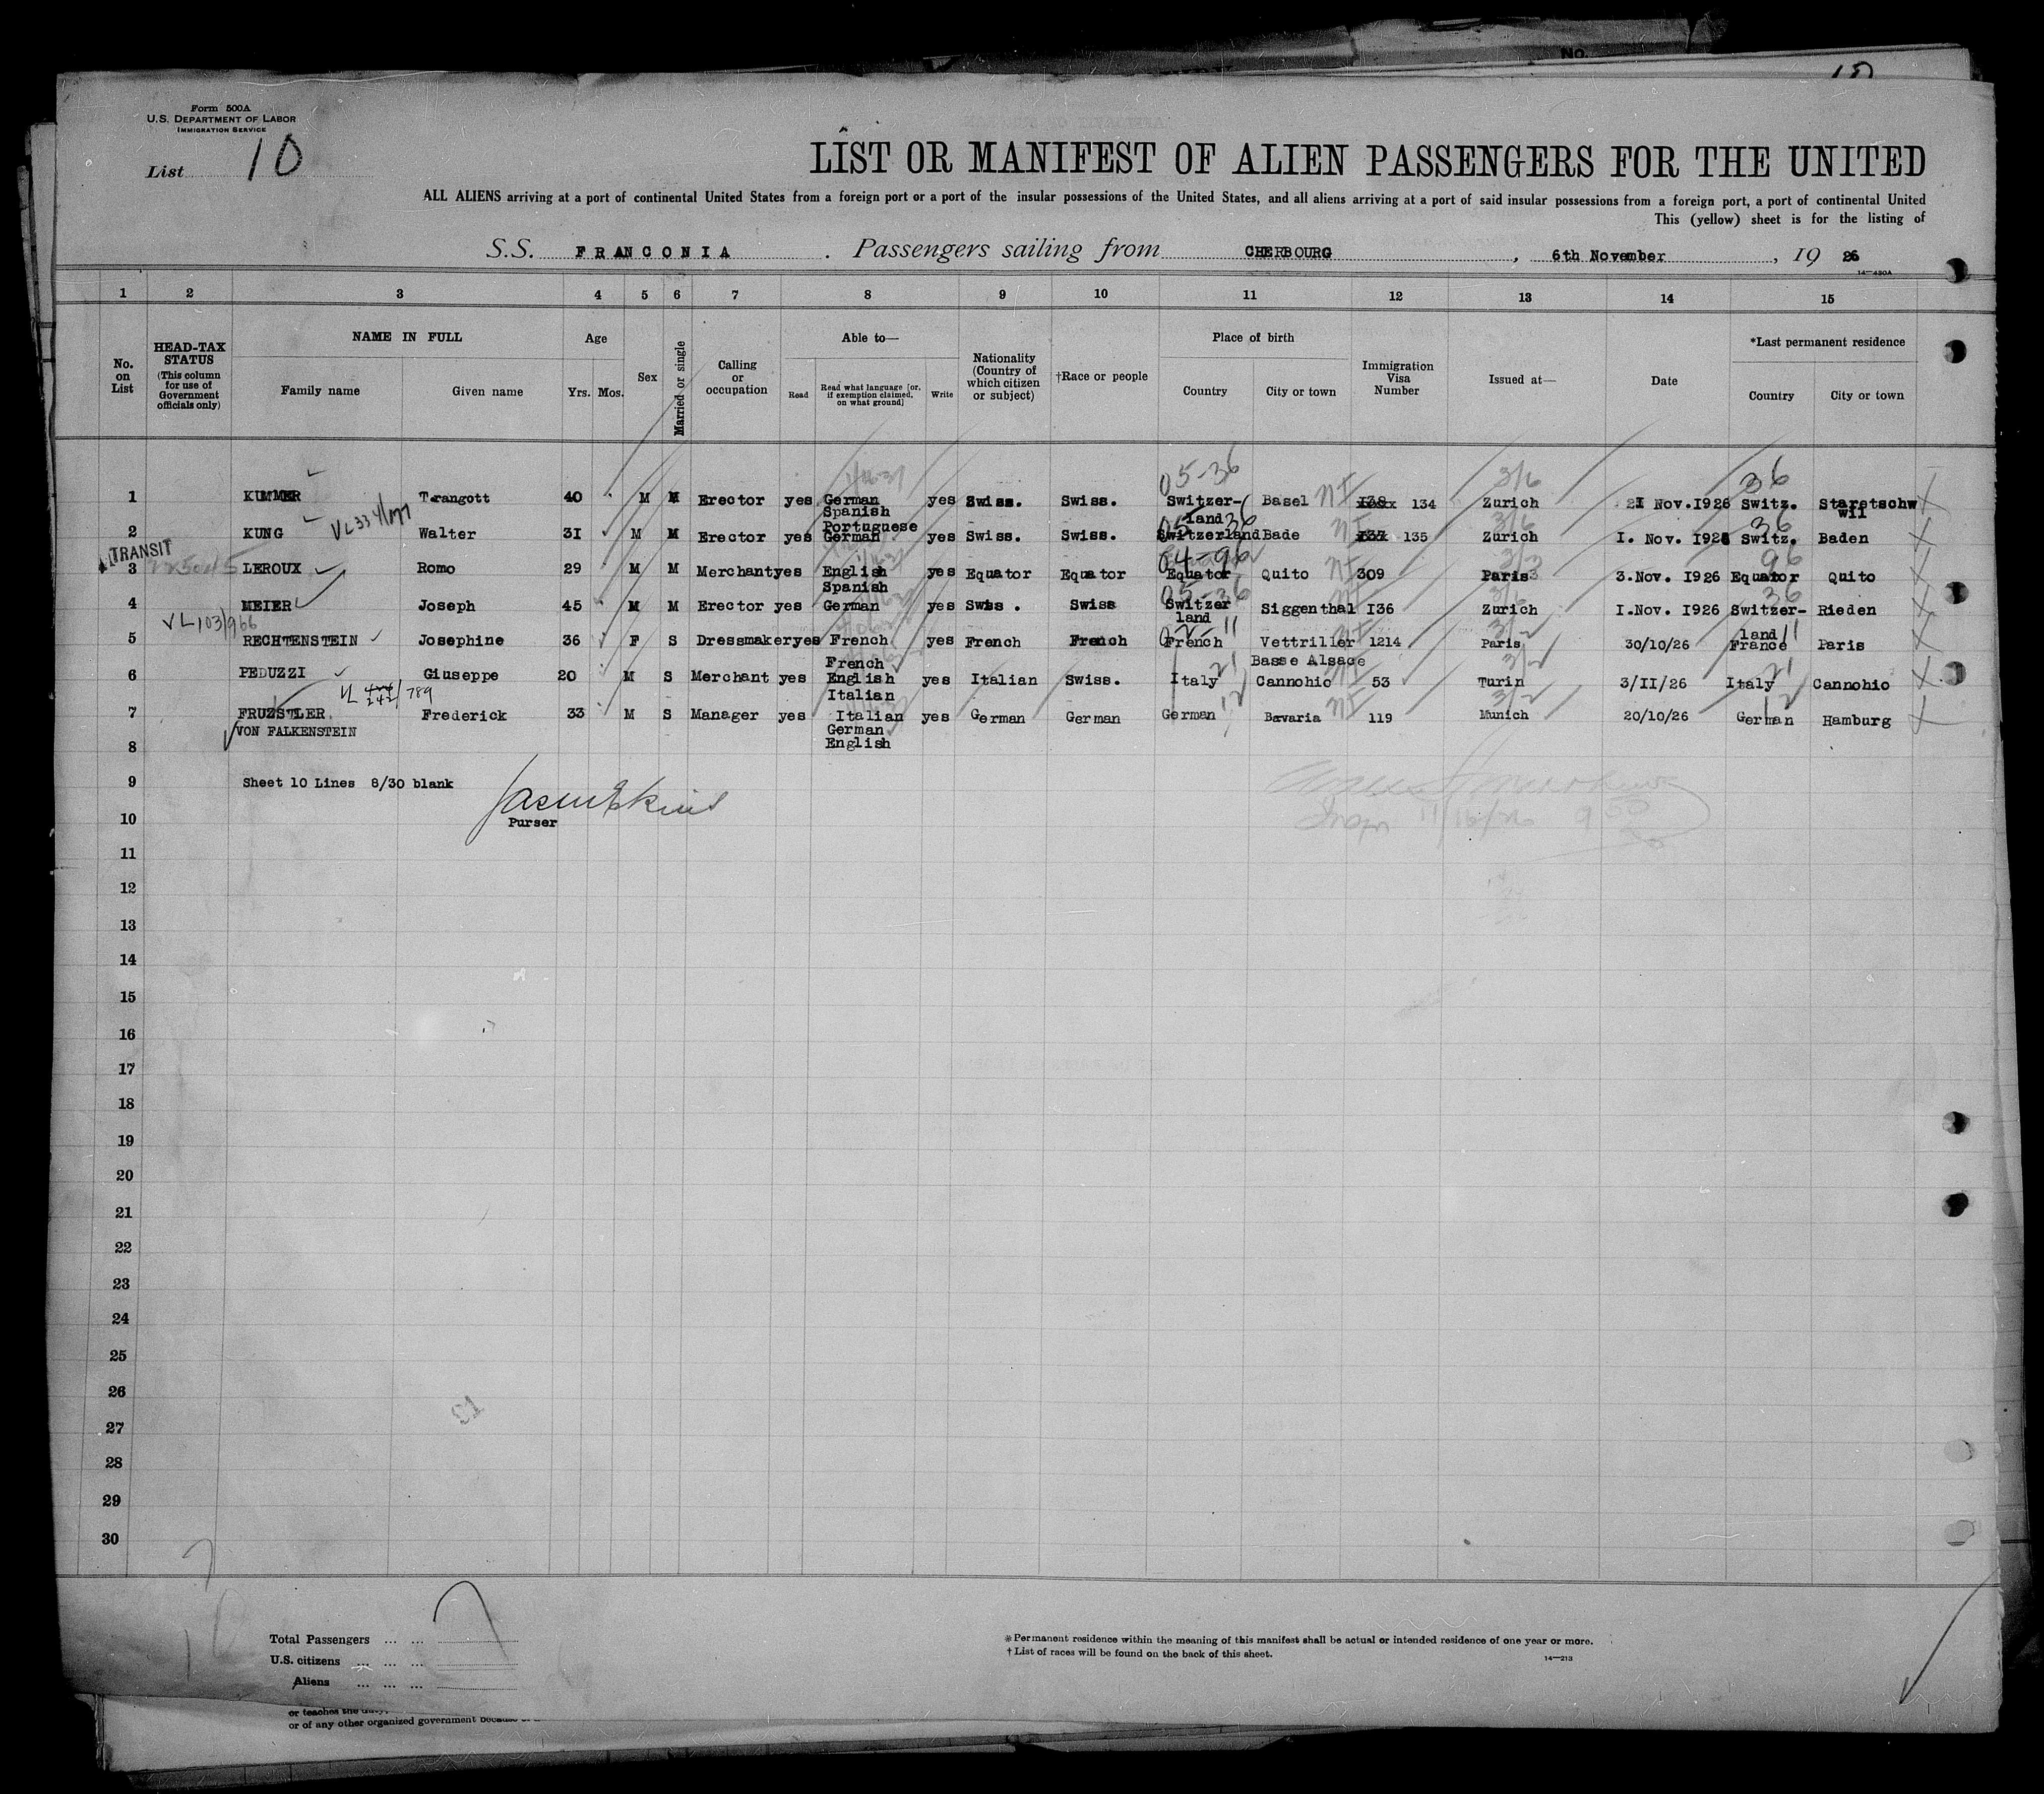 No.
10
Form 500A
U.S. DEPARTMENT OF LABOR
IMMIGRATION SERVICE
List 10
LIST OR MANIFEST OF ALIEN PASSENGERS FOR THE UNITED
ALL ALIENS arriving at a port of continental United States from a foreign port or a port of the insular possessions of the United States, and all aliens arriving at a port of said insular possessions from a foreign port, a port of continental United
This (yellow) sheet is for the listing of
S.S. FRANCONIA . Passengers sailing from CHERBOURG , 6th November , 19 26
14—430A
1 2 3 4 5 6 7 8 9 10 11 12 13 14 15
No. on List
HEAD-TAX STATUS (This column for use of Government officials only)
NAME IN FULL
Family name Given name
Age
Yrs. Mos.
Sex
Married or single
Calling or occupation
Able to—
Read Read what language [or, if exemption claimed, on what ground] Write
Nationality (Country of which citizen or subject)
†Race or people
Place of birth
Country City or town
Immigration Visa Number
Issued at—
Date
*Last permanent residence
Country City or town
05-36 3/6 36
1 KUMMER Trangott 40 M M Erector yes German yes Swiss. Swiss. Switzer- Basel NI 134 Zurich 21 Nov.1926 Switz. Staretschw
Spanish land wil
VL334/
Portuguese 05 36 3/6 36
2 KUNG Walter 31 M M Erector yes German yes Swiss. Swiss. Switzerland Bade NI 135 Zurich I. Nov. 1926 Switz. Baden
TRANSIT 04-96 96
3 LEROUX Romo 29 M M Merchant yes English yes Equator Equator Equator Quito NI 309 Paris 3.Nov. 1926 Equator Quito
Spanish 05-36 36
4 MEIER Joseph 45 M M Erector yes German yes Swiss . Swiss Switzer Siggenthal I36 Zurich I.Nov. 1926 Switzer- Rieden
land land
VL103/966 02-11 3/2 11
5 RECHTENSTEIN Josephine 36 F S Dressmaker yes French yes French French French Vettriller 1214 Paris 30/10/26 France Paris
French Basse Alsace
21 3/2 21
6 PEDUZZI Giuseppe 20 M S Merchant yes English yes Italian Swiss. Italy Cannohio 53 Turin 3/II/26 Italy Cannohio
Italian
VL 242/789 12 3/2 12
7 FRUZSTLER Frederick 33 M S Manager yes Italian yes German German German Bavaria NI 119 Munich 20/10/26 German Hamburg
VON FALKENSTEIN German
8 English
9 Sheet 10 Lines 8/30 blank
10 Purser
11/16/26 9 50
11
12
13
14
15
16
17
18
19
20
21
22
23
24
25
26
27
28
29
30
Total Passengers ... ... 7
U.S. citizens ... ... ...
Aliens ... ... ...
* Permanent residence within the meaning of this manifest shall be actual or intended residence of one year or more.
† List of races will be found on the back of this sheet.
14—213
or teaches the duty,
or of any other organized government because